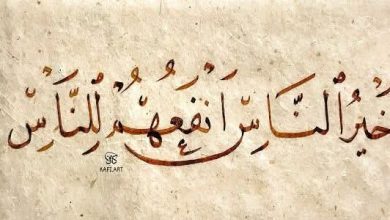 خَيْرُ ٱلنَّاسِ أَنْفَعُهُمْ لِلنَّاسِ
KAFI.ART